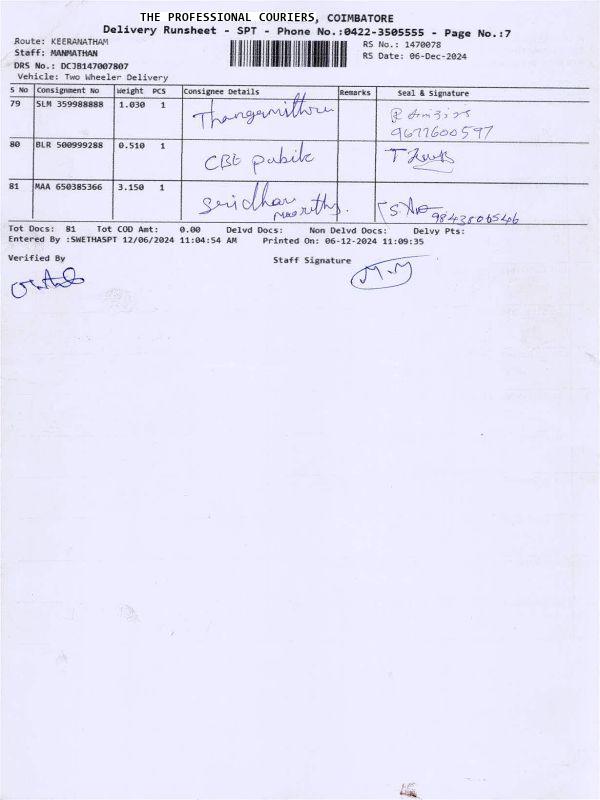 THE PROFESSIONAL COURIERS, COIMBATORE
Delivery Runsheet - SPT - Phone No.:0422-3505555 - Page No.:7
Route: KEERANATHAM
RS No.: 1470078
Staff: MANMATHAN
RS Date: 06-Dec-2024
DRS No.: DCJB147007807
Vehicle: Two Wheeler Delivery
S No Consignment No Weight PCS Consignee Details Remarks Seal & Signature
79 SLM 359988888 1.030 1 Thangamithru
9677600597
80 BLR 500999288 0.510 1 CBE pubilc
81 MAA 650385366 3.150 1 Sridhar
9843806546
Tot Docs: 81 Tot COD Amt: 0.00 Delvd Docs: Non Delvd Docs: Delvy Pts:
Entered By :SWETHASPT 12/06/2024 11:04:54 AM Printed On: 06-12-2024 11:09:35
Verified By Staff Signature
M.M